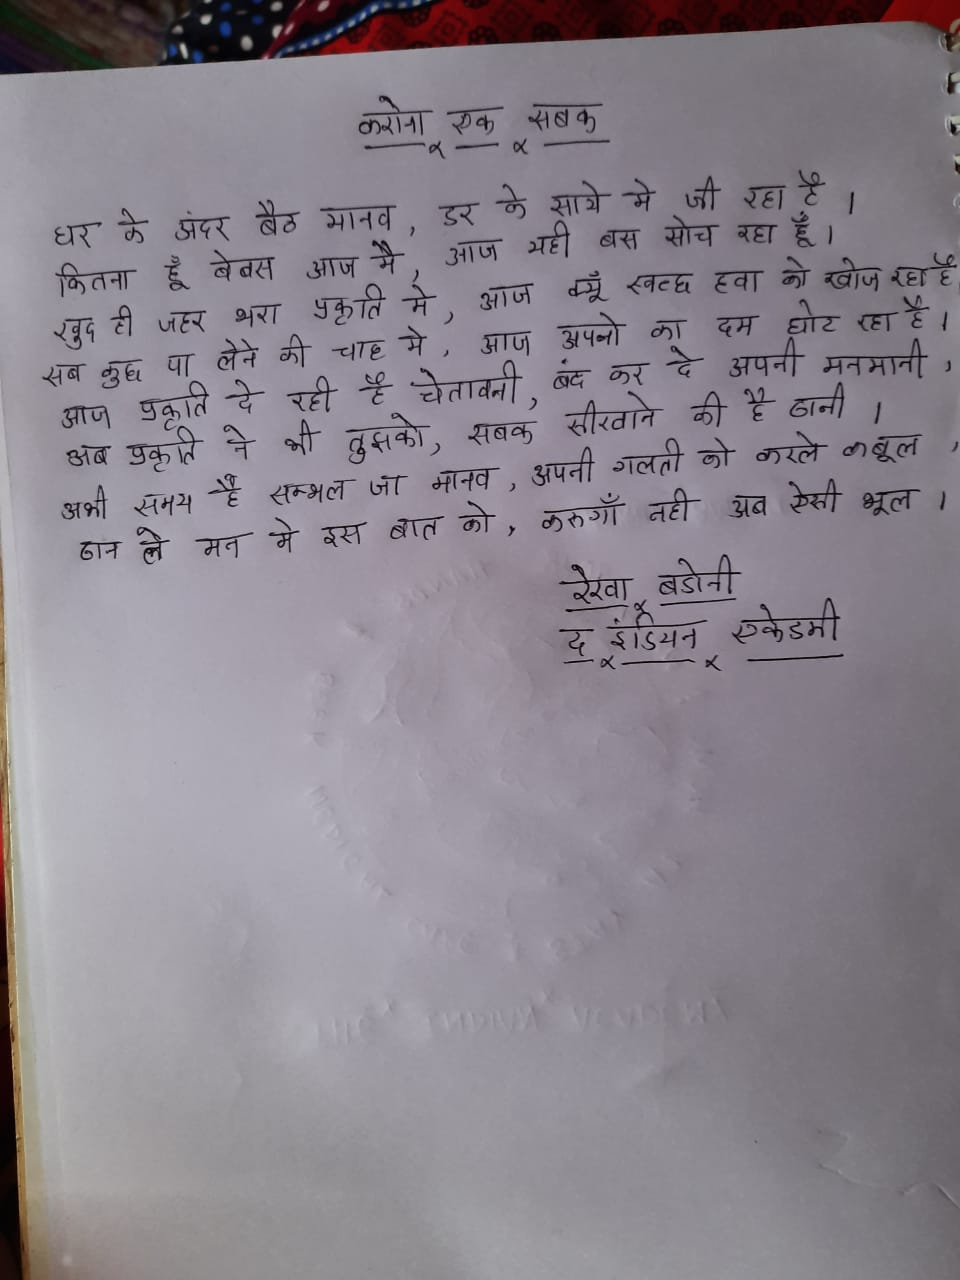 करोना एक सबक
घर के अंदर बैठ मानव, डर के साये मे जी रहा है ।
कितना हूँ बेबस आज मै, आज यही बस सोच रहा हूँ।
खुद ही जहर भरा प्रकृति मे, आज क्यूँ स्वच्छ हवा को खोज रहा है
सब कुछ पा लेने की चाह मे, आज अपनो का दम घोट रहा है ।
आज प्रकृति दे रही है चेतावनी, बंद कर दे अपनी मनमानी ,
अब प्रकृति ने भी तुझको, सबक सीखाने की है ठानी ।
अभी समय है सम्भल जा मानव, अपनी गलती को करले कबूल ,
ठान ले मन मे इस बात को, करुगाँ नही अब ऐसी भूल ।
रेखा बडोनी
द इंडियन एकेडमी